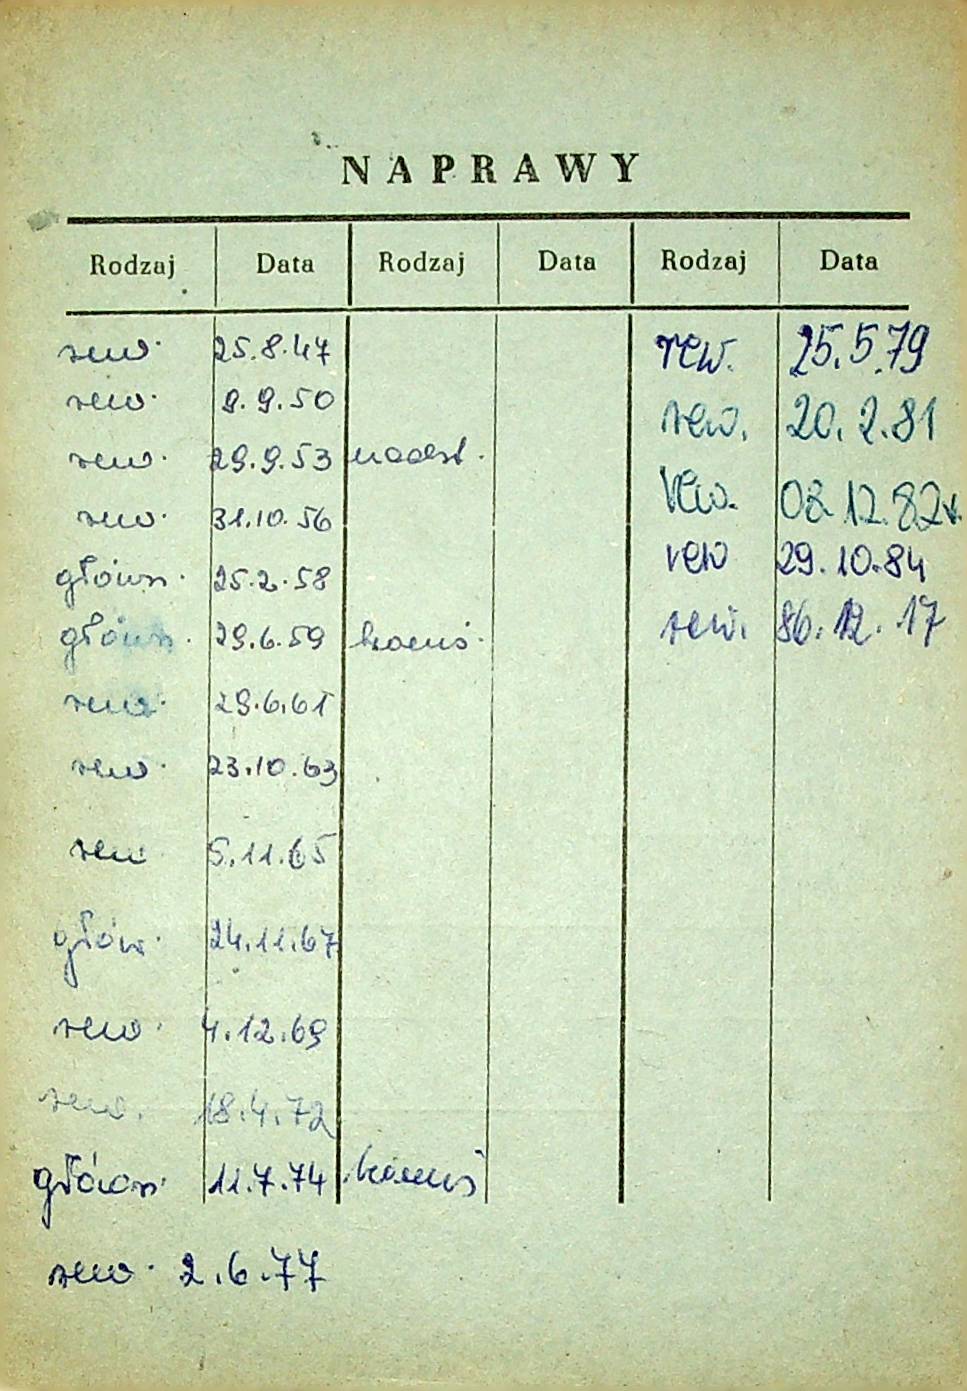 NAPRAWY
Rodzaj Data Rodzaj Data Rodzaj Data
rew. 25.8.47 rew. 25.5.79
rew. 9.9.50 rew. 20.2.81
rew. 29.9.53 rew. 08.12.82r.
rew. 31.10.56 rew 29.10.84
główn. 25.2.58
główn. 29.6.59 rew. 86.12.17
rew. 29.6.61
rew. 23.10.63
rew 5.11.65
głów. 24.11.67
rew. 4.12.69
rew. 18.4.72
główn. 11.7.74
rew. 2.6.77